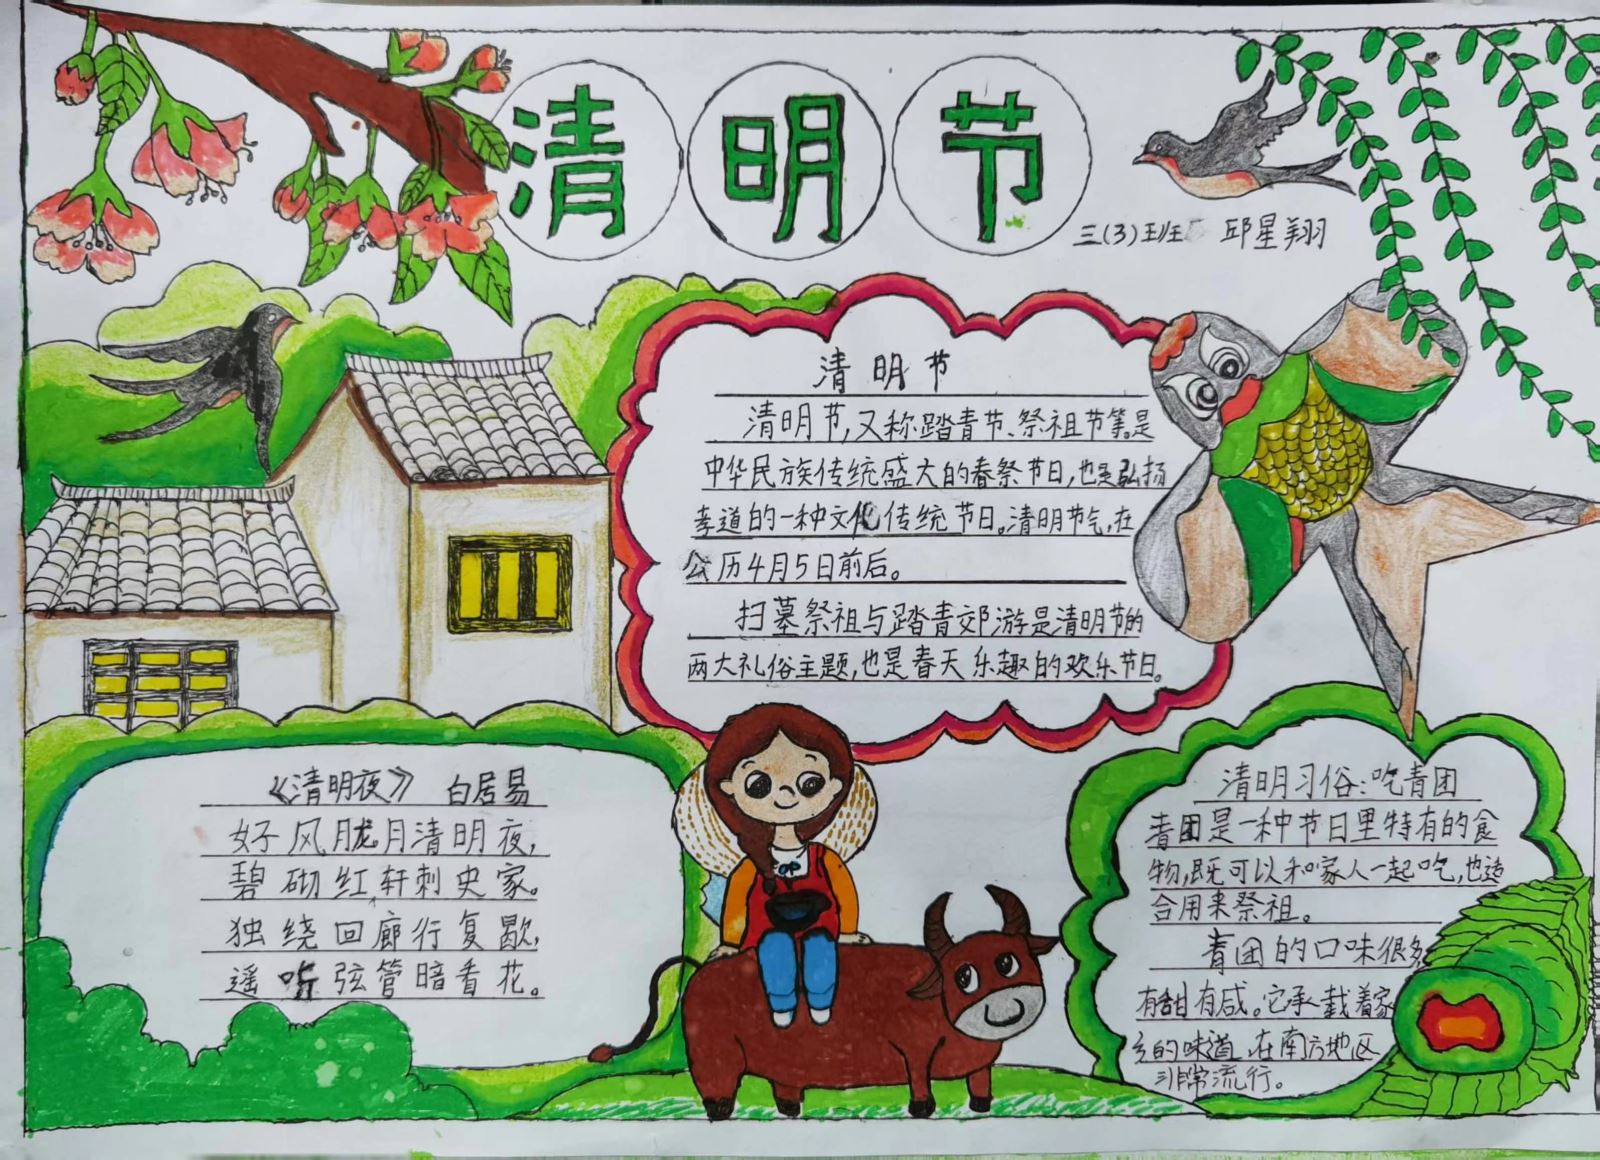 清明节
三(3)班 邱星翔
清明节
清明节,又称踏青节、祭祖节等。是
中华民族传统盛大的春祭节日,也是弘扬
孝道的一种文化传统节日。清明节气,在
公历4月5日前后。
扫墓祭祖与踏青郊游是清明节的
两大礼俗主题,也是春天乐趣的欢乐节日。
《清明夜》 白居易
好风胧月清明夜,
碧砌红轩刺史家。
独绕回廊行复歇,
遥听弦管暗看花。
清明习俗:吃青团
青团是一种节日里特有的食
物,既可以和家人一起吃,也适
合用来祭祖。
青团的口味很多
有甜有咸。它承载着家
乡的味道,在南方地区
非常流行。